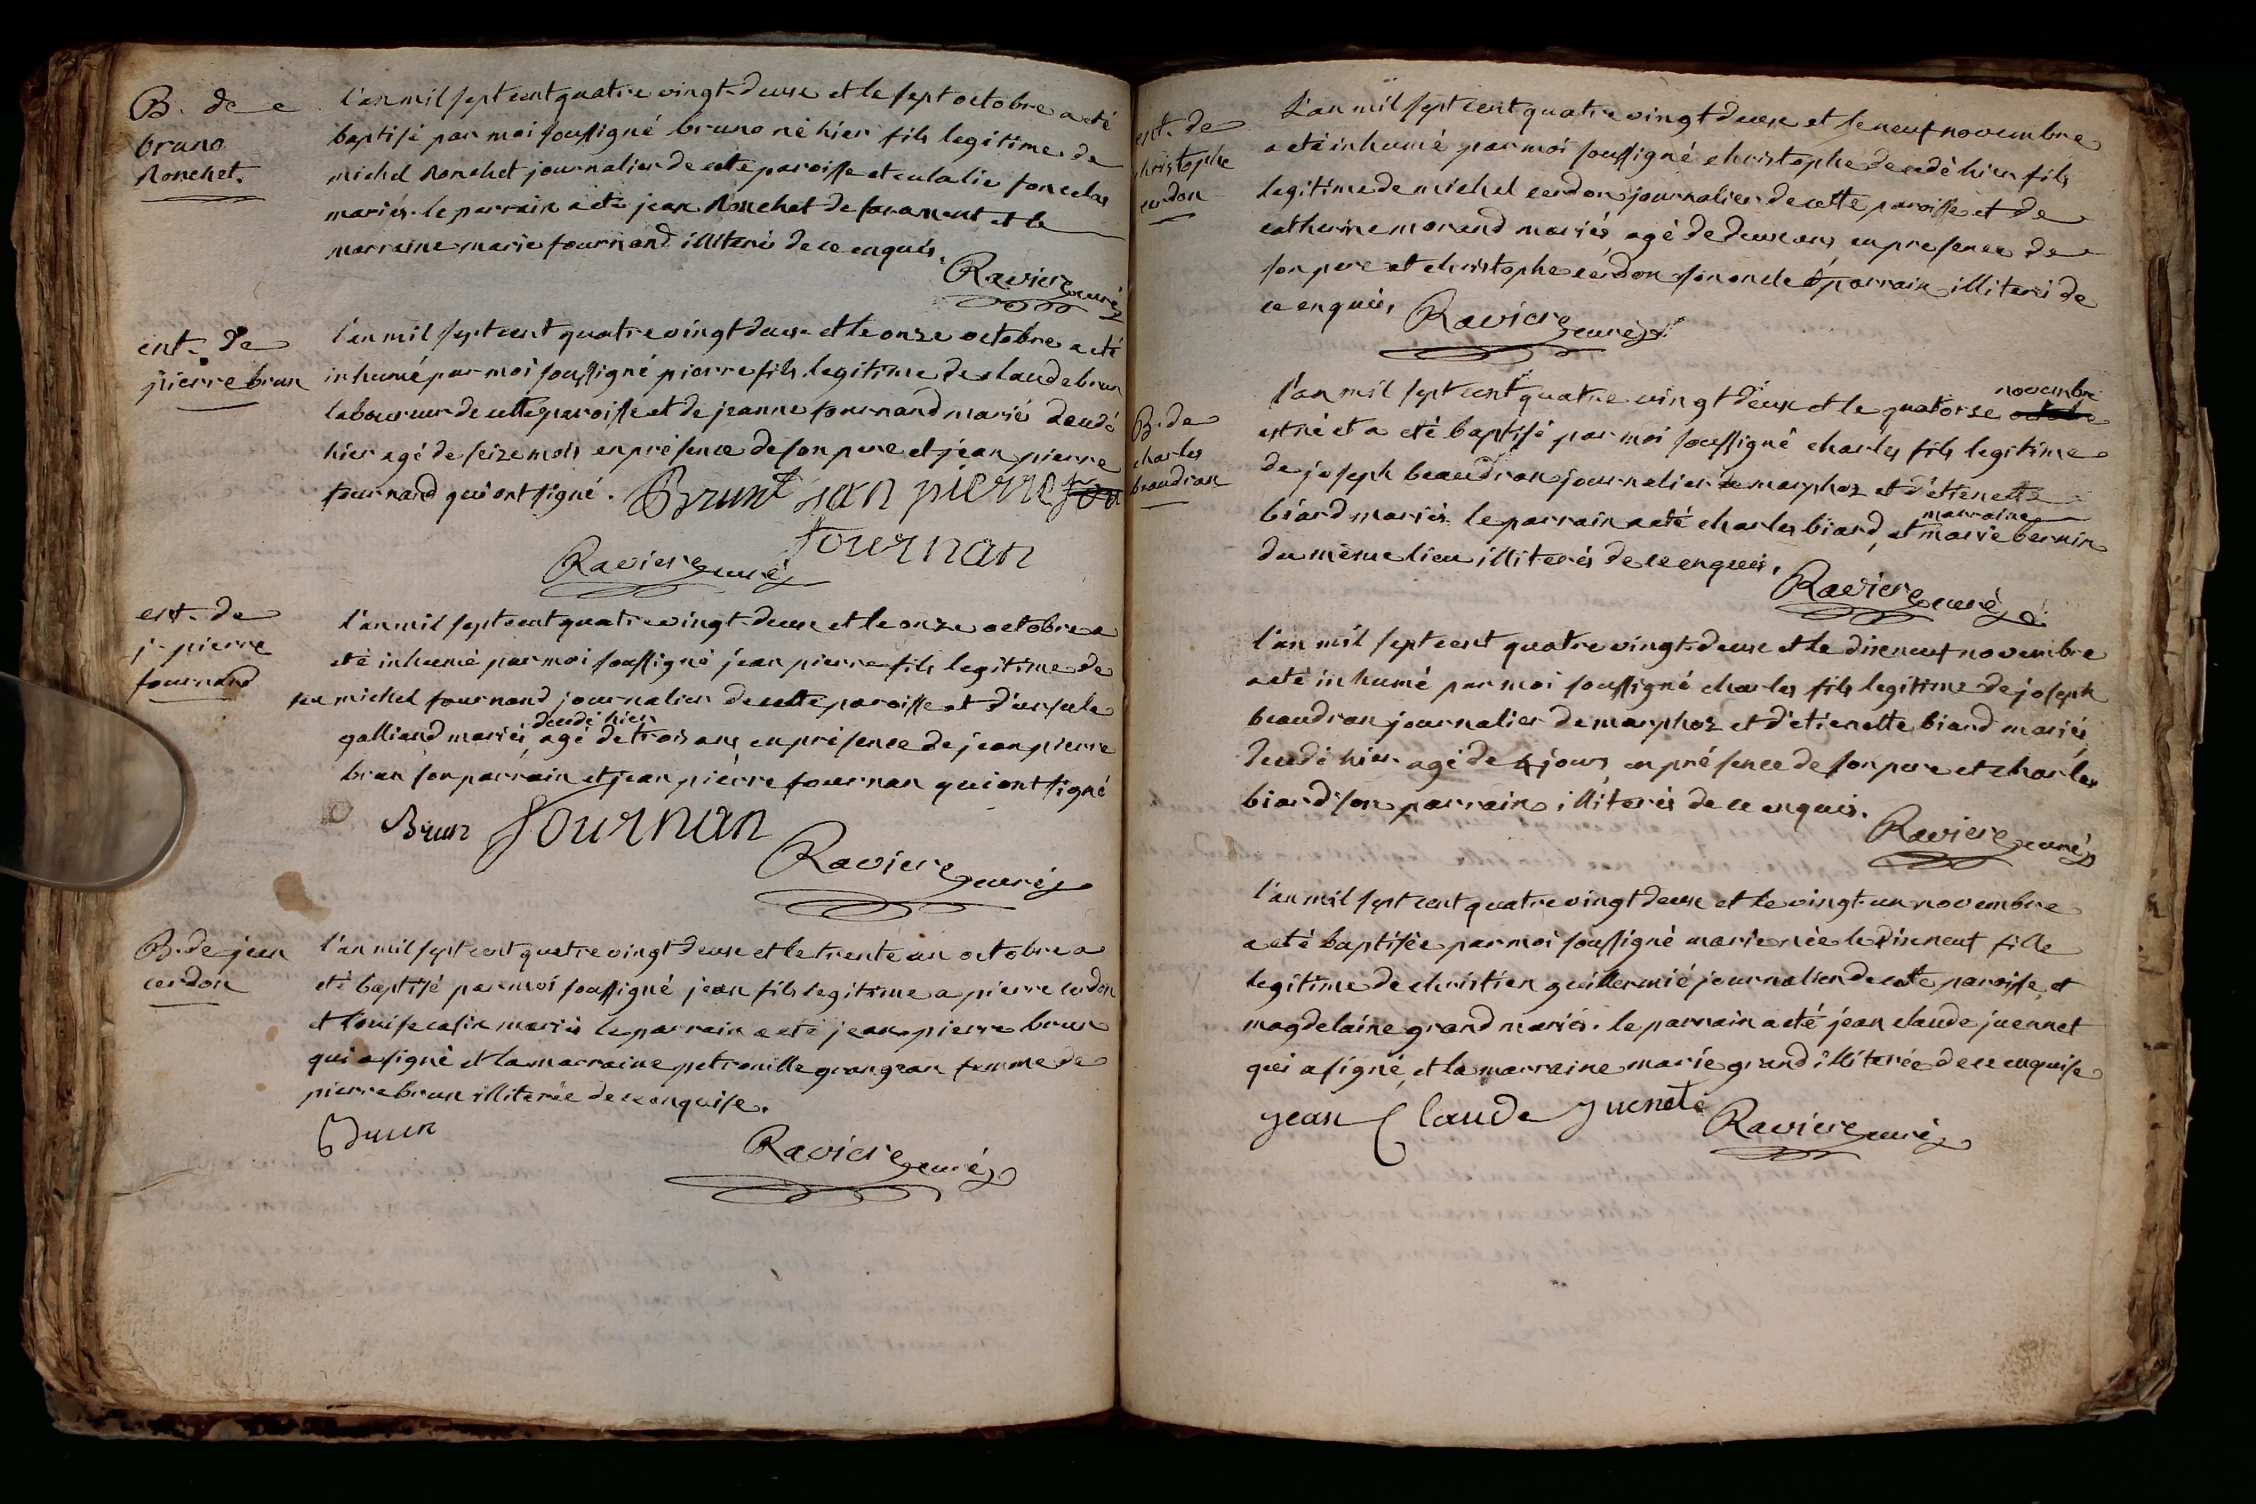 B. de
bruno
Ronchet.
l'an mil sept cent quatre vingt-deux et le sept octobre a eté
baptisé par moi soussigné bruno né hier fils legitime de
michel Ronchet journalier de cette paroisse et eulalie
mariés. le parrain a eté jean Ronchet de et la
marraine marie fournand illiterés de ce enquis.
Raviere curé
ent. de
pierre brun
l'an mil sept cent quatre vingt deux et le onze octobre a eté
inhumé par moi soussigné pierre fils legitime de claude brun
laboureur de cette paroisse et de jeanne fournand mariés decedé
hier agé de seize mois en présence de son pere et jean pierre
fournand qui ont signé. Brunt jan pierre fou
fournan
Raviere curé
ent. de
j. pierre
fournand
l'an mil sept cent quatre vingt-deux et le onze octobre a
eté inhumé par moi soussigné jean pierre fils legitime de
feu michel fournand journalier de cette paroisse et d'ursule
decedé hier
galliand mariés agé de trois ans en présence de jean pierre
brun son parrain et jean pierre fournan qui ont signé
Brun fournan
Raviere curé
B. de jean
cerdon
l'an mil sept cent quatre vingt-deux et le trente un octobre a
eté baptisé par moi soussigné jean fils legitime a pierre cerdon
et louise catin mariés le parrain a eté jean pierre brun
qui a signé et la marraine petronille grangean femme de
pierre brun illiterée de ce enquise.
Brun
Raviere curé
ent. de
christophe
cerdon
L'an mil sept cent quatre vingt deux et le neuf novembre
a eté inhumé par moi soussigné christophe decedé hier fils
legitime de michel cerdon journalier de cette paroisse et de
catherine morand mariés, agé de deux ans, en presence de
son pere et christophe cerdon son oncle & parrain illiterés de
ce enquis, Raviere curé
B. de
charles
beaudran
novembre
l'an mil sept cent quatre vingt deux et le quatorze octobre
est né et a eté baptisé par moi soussigné charles fils legitime
de joseph beaudran journalier de marphoz et d'etienette
marraine
biard mariés. le parrain a eté charles biard, et marie bernin
du même lieu illiterés de ce enquis,
Raviere curé
l'an mil sept cent quatre vingt-deux et le dixneuf novembre
a eté inhumé par moi soussigné charles fils legitime de joseph
beaudran journalier de marphoz et d'etienette biard mariés
decedé hier agé de 4 jours, en présence de son pere et charles
biard son parrain illiterés de ce enquis.
Raviere curé
l'an mil sept cent quatre vingt deux et le vingt-un novembre
a eté baptisée par moi soussigné marie née le dixneuf fille
legitime de christien guillermié journalier de cette paroisse, et
magdelaine grand mariés. le parrain a eté jean claude juennet
qui a signé, et la marraine marie grand illiterée de ce enquise
jean Claude juenete Raviere curé